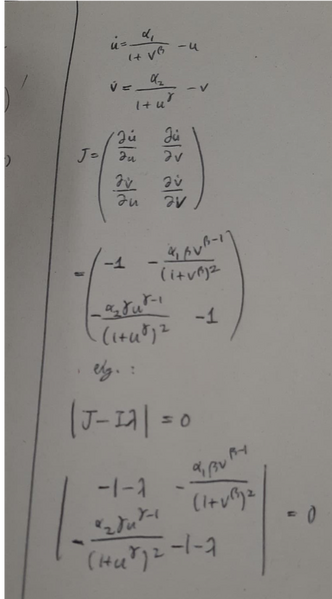 u̇ = α₁/(1 + v^β) - u
v̇ = α₂/(1 + u^γ) - v
J = (∂u̇/∂u ∂u̇/∂v
∂v̇/∂u ∂v̇/∂v)
= (-1 -α₁βv^(β-1)/(1+v^β)²
-α₂γu^(γ-1)/(1+u^γ)² -1)
eig. :
|J - Iλ| = 0
|-1-λ -α₁βv^(β-1)/(1+v^β)²
-α₂γu^(γ-1)/(1+u^γ)² -1-λ| = 0